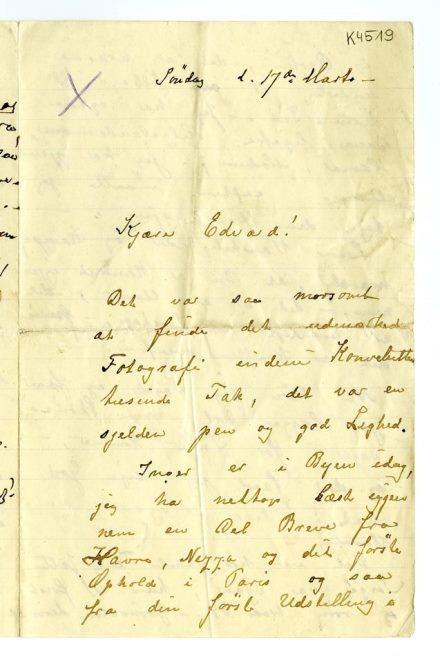 K4519
Søndag d. 17de Marts –
Kjære Edvard!
Det var saa morsomt
at finde det udmærked
Fotografi indeni Konvolutten
tusinde Tak, det var en
sjelden pen og god Lighed.
Inger er i Byen idag,
jeg har nettop læst igjen
nem en Del Breve fra
Havre, Nizza og dit første
Ophold i Paris og saa
fra din første Udstilling i